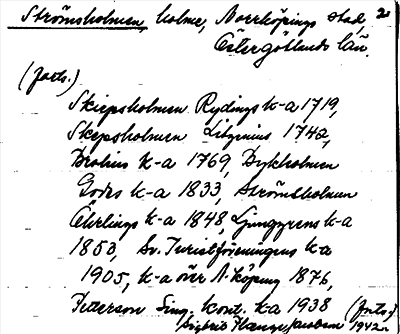 Strömsholmen, holme, Norrköpings stad, 2
Östergötlands län.
(forts.)
Skepsholmen Rydings k-a 1719,
Skepsholmen 1742,
Brolins k-a 1769, Dykholmen
Godes k-a 1833, Strömsholmen
Öhrlings k-a 1848, Ljunggrens k-a
1853, Sv. Turistföreningens k-a
1905, k-a över N-köping 1876,
Petterson Sing. kont. k-a 1938 (forts.)
Sigbrit 1942.